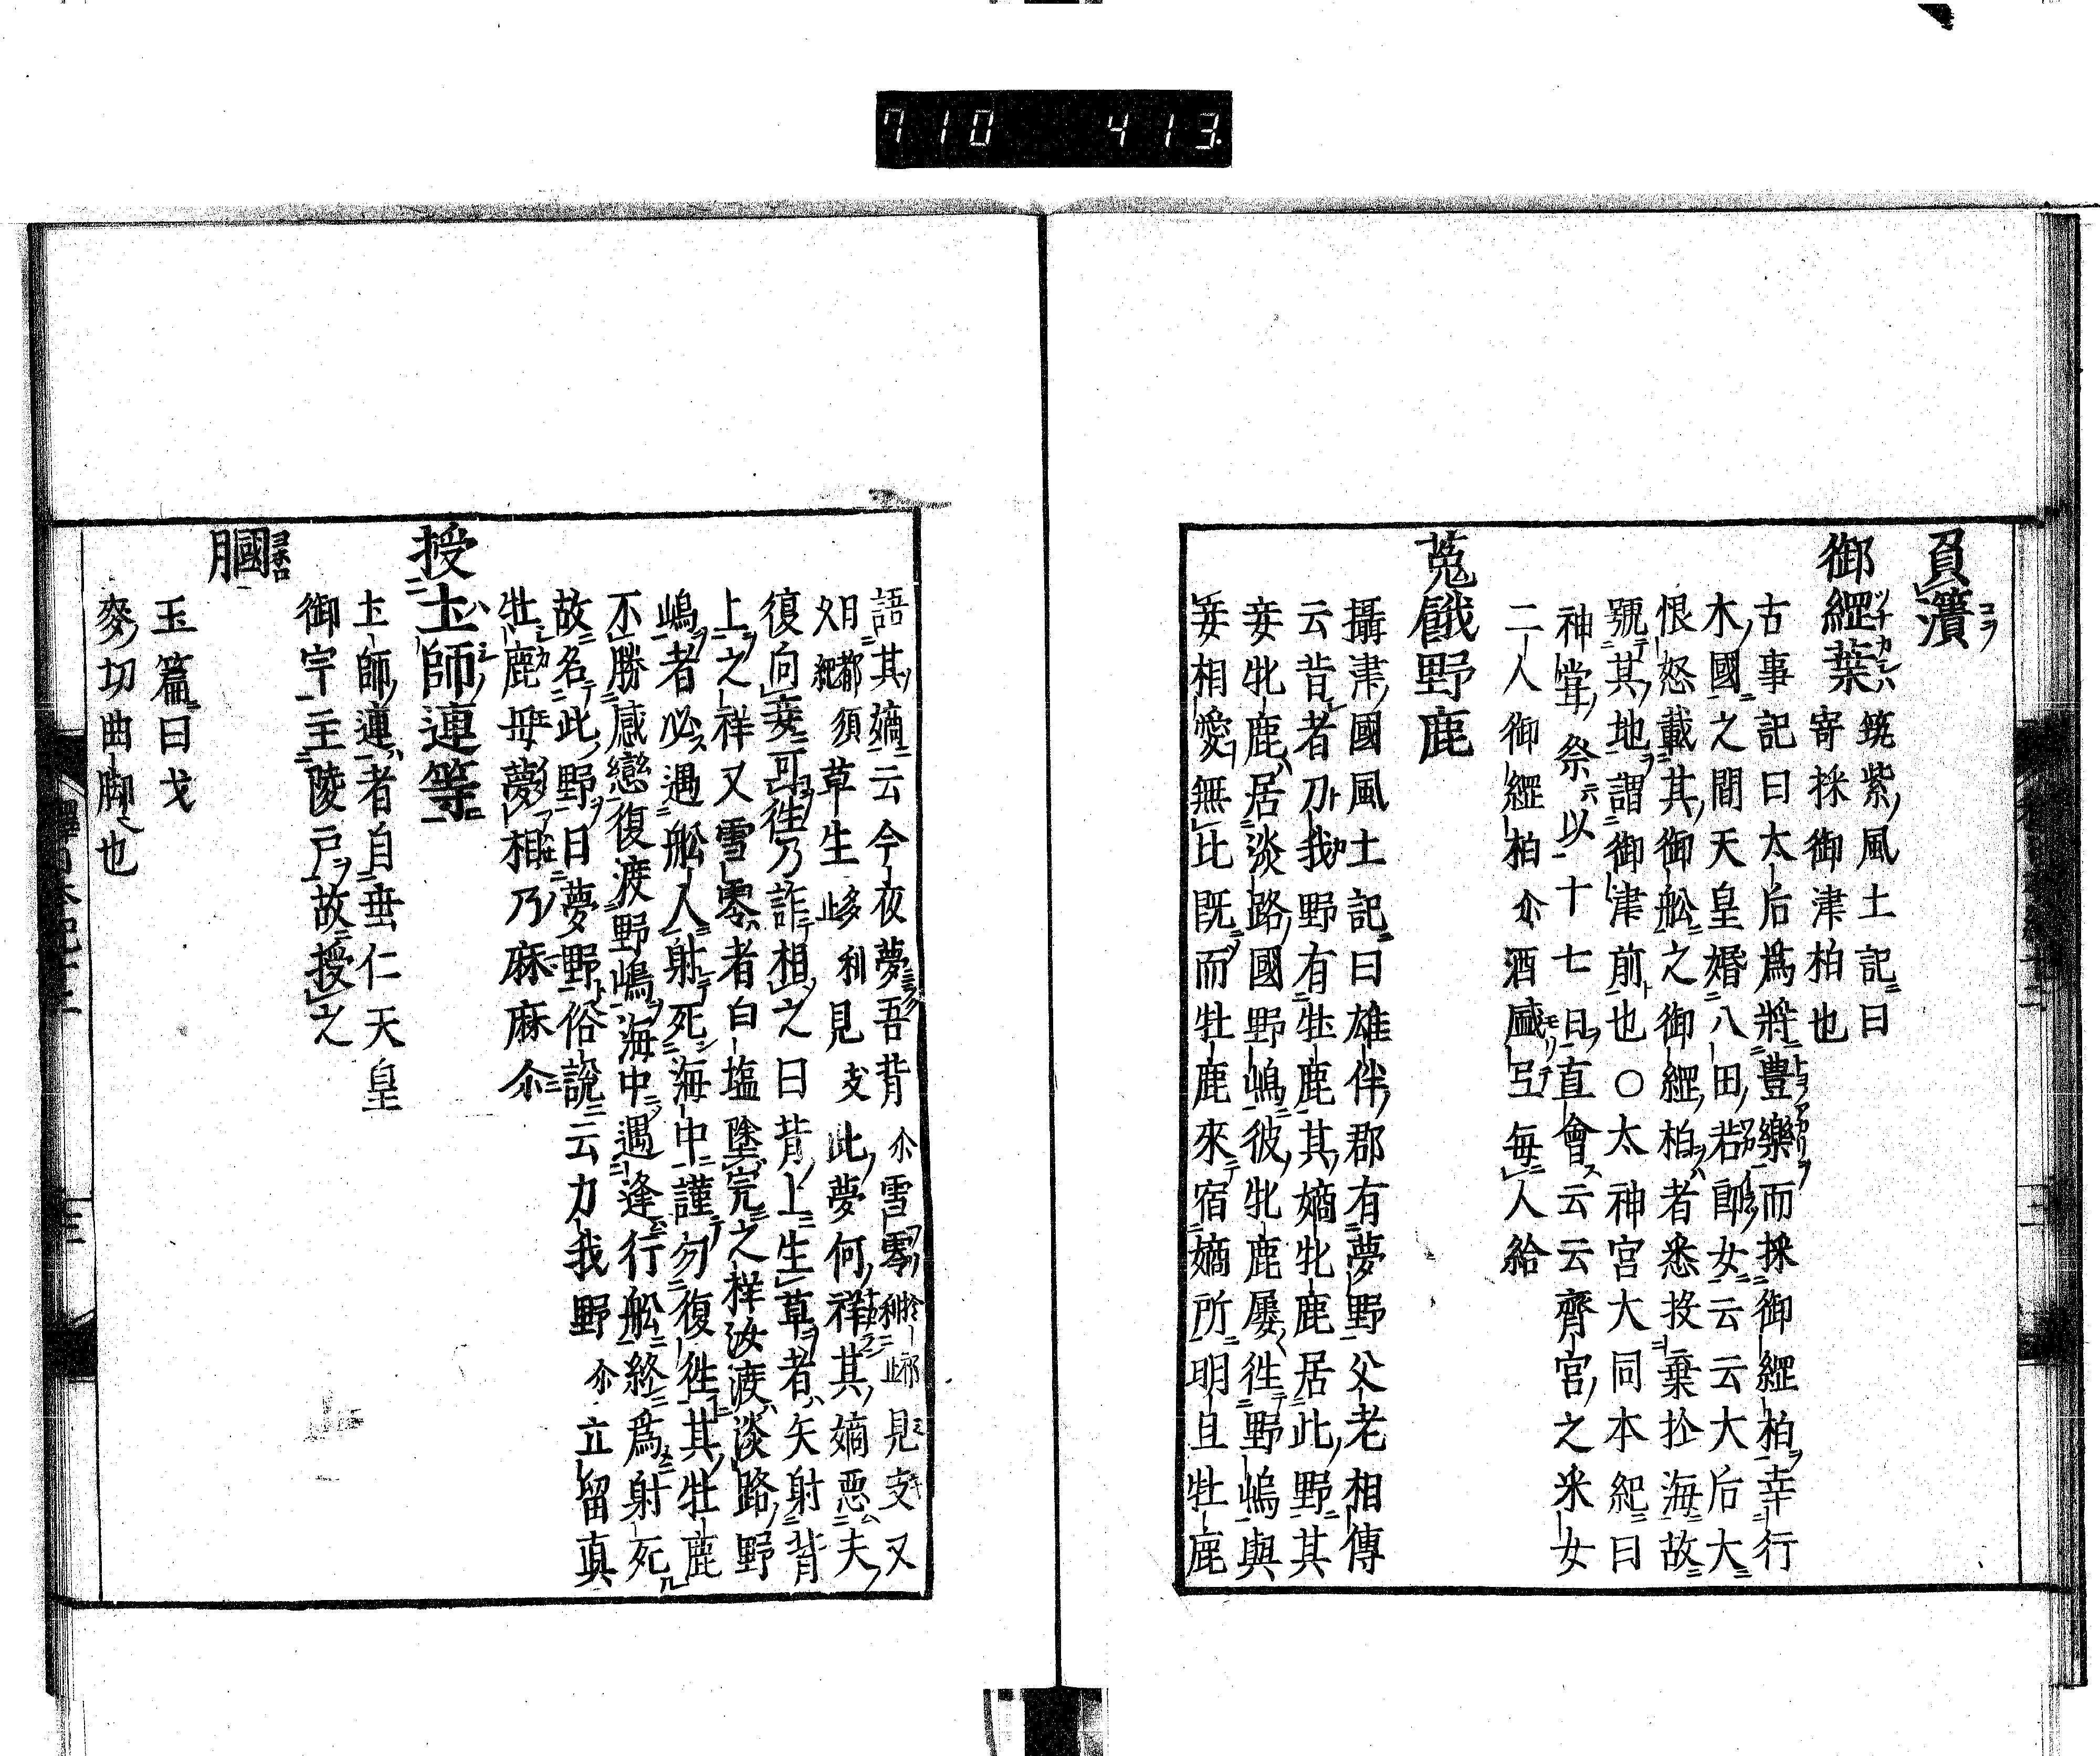 710 413.
負簣
筑紫風土記曰
御䋄葉寄採御津柏也
古事記曰太后爲將豊樂而採御䋄柏幸行
木國之間天皇婚八田若郎女云云大后大
恨怒載其御舩之御䋄柏者悉投棄於海故
號其地謂御津前也○太神宮大同本紀曰
神甞祭以十七日直會云云齊宮之采女
二人御䋄柏尒酒盛弖每人給
菟餓野鹿
攝津國風土記曰雄伴郡有夢野父老相傳
云昔者刀我野有牡鹿其嫡牝鹿居此野其
妾牝鹿居淡路國野嶋彼牝鹿屢徃野嶋與
妾相愛無比既而牡鹿來宿嫡所明旦牡鹿
語其嫡云今夜夢吾背尒雪零於祁利止見支又
曰都須
紀草生多利
止見支此夢何祥其嫡惡夫
復向妾可徃乃詐相之曰背上生草者矢射背
上之祥又雪零者白塩塗宍之祥汝渡淡路野
嶋者必遇舩人射死海中謹勿復徃其牡鹿
不勝感戀復渡野嶋海中遇逢行舩終爲射死
故名此野曰夢野俗說云刀我野尒立留眞
牡鹿母夢相乃麻麻尒
授土師連等
土師連者自垂仁天皇
御宇主陵戸故授之
膕
玉篇曰戈
麥切曲脚也